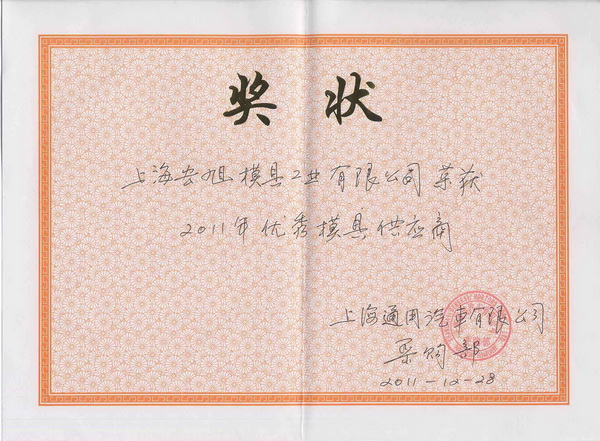 奖状
上海宏旭模具工业有限公司 荣获
2011年优秀模具供应商
上海通用汽車有限公司
采购部
2011-12-28